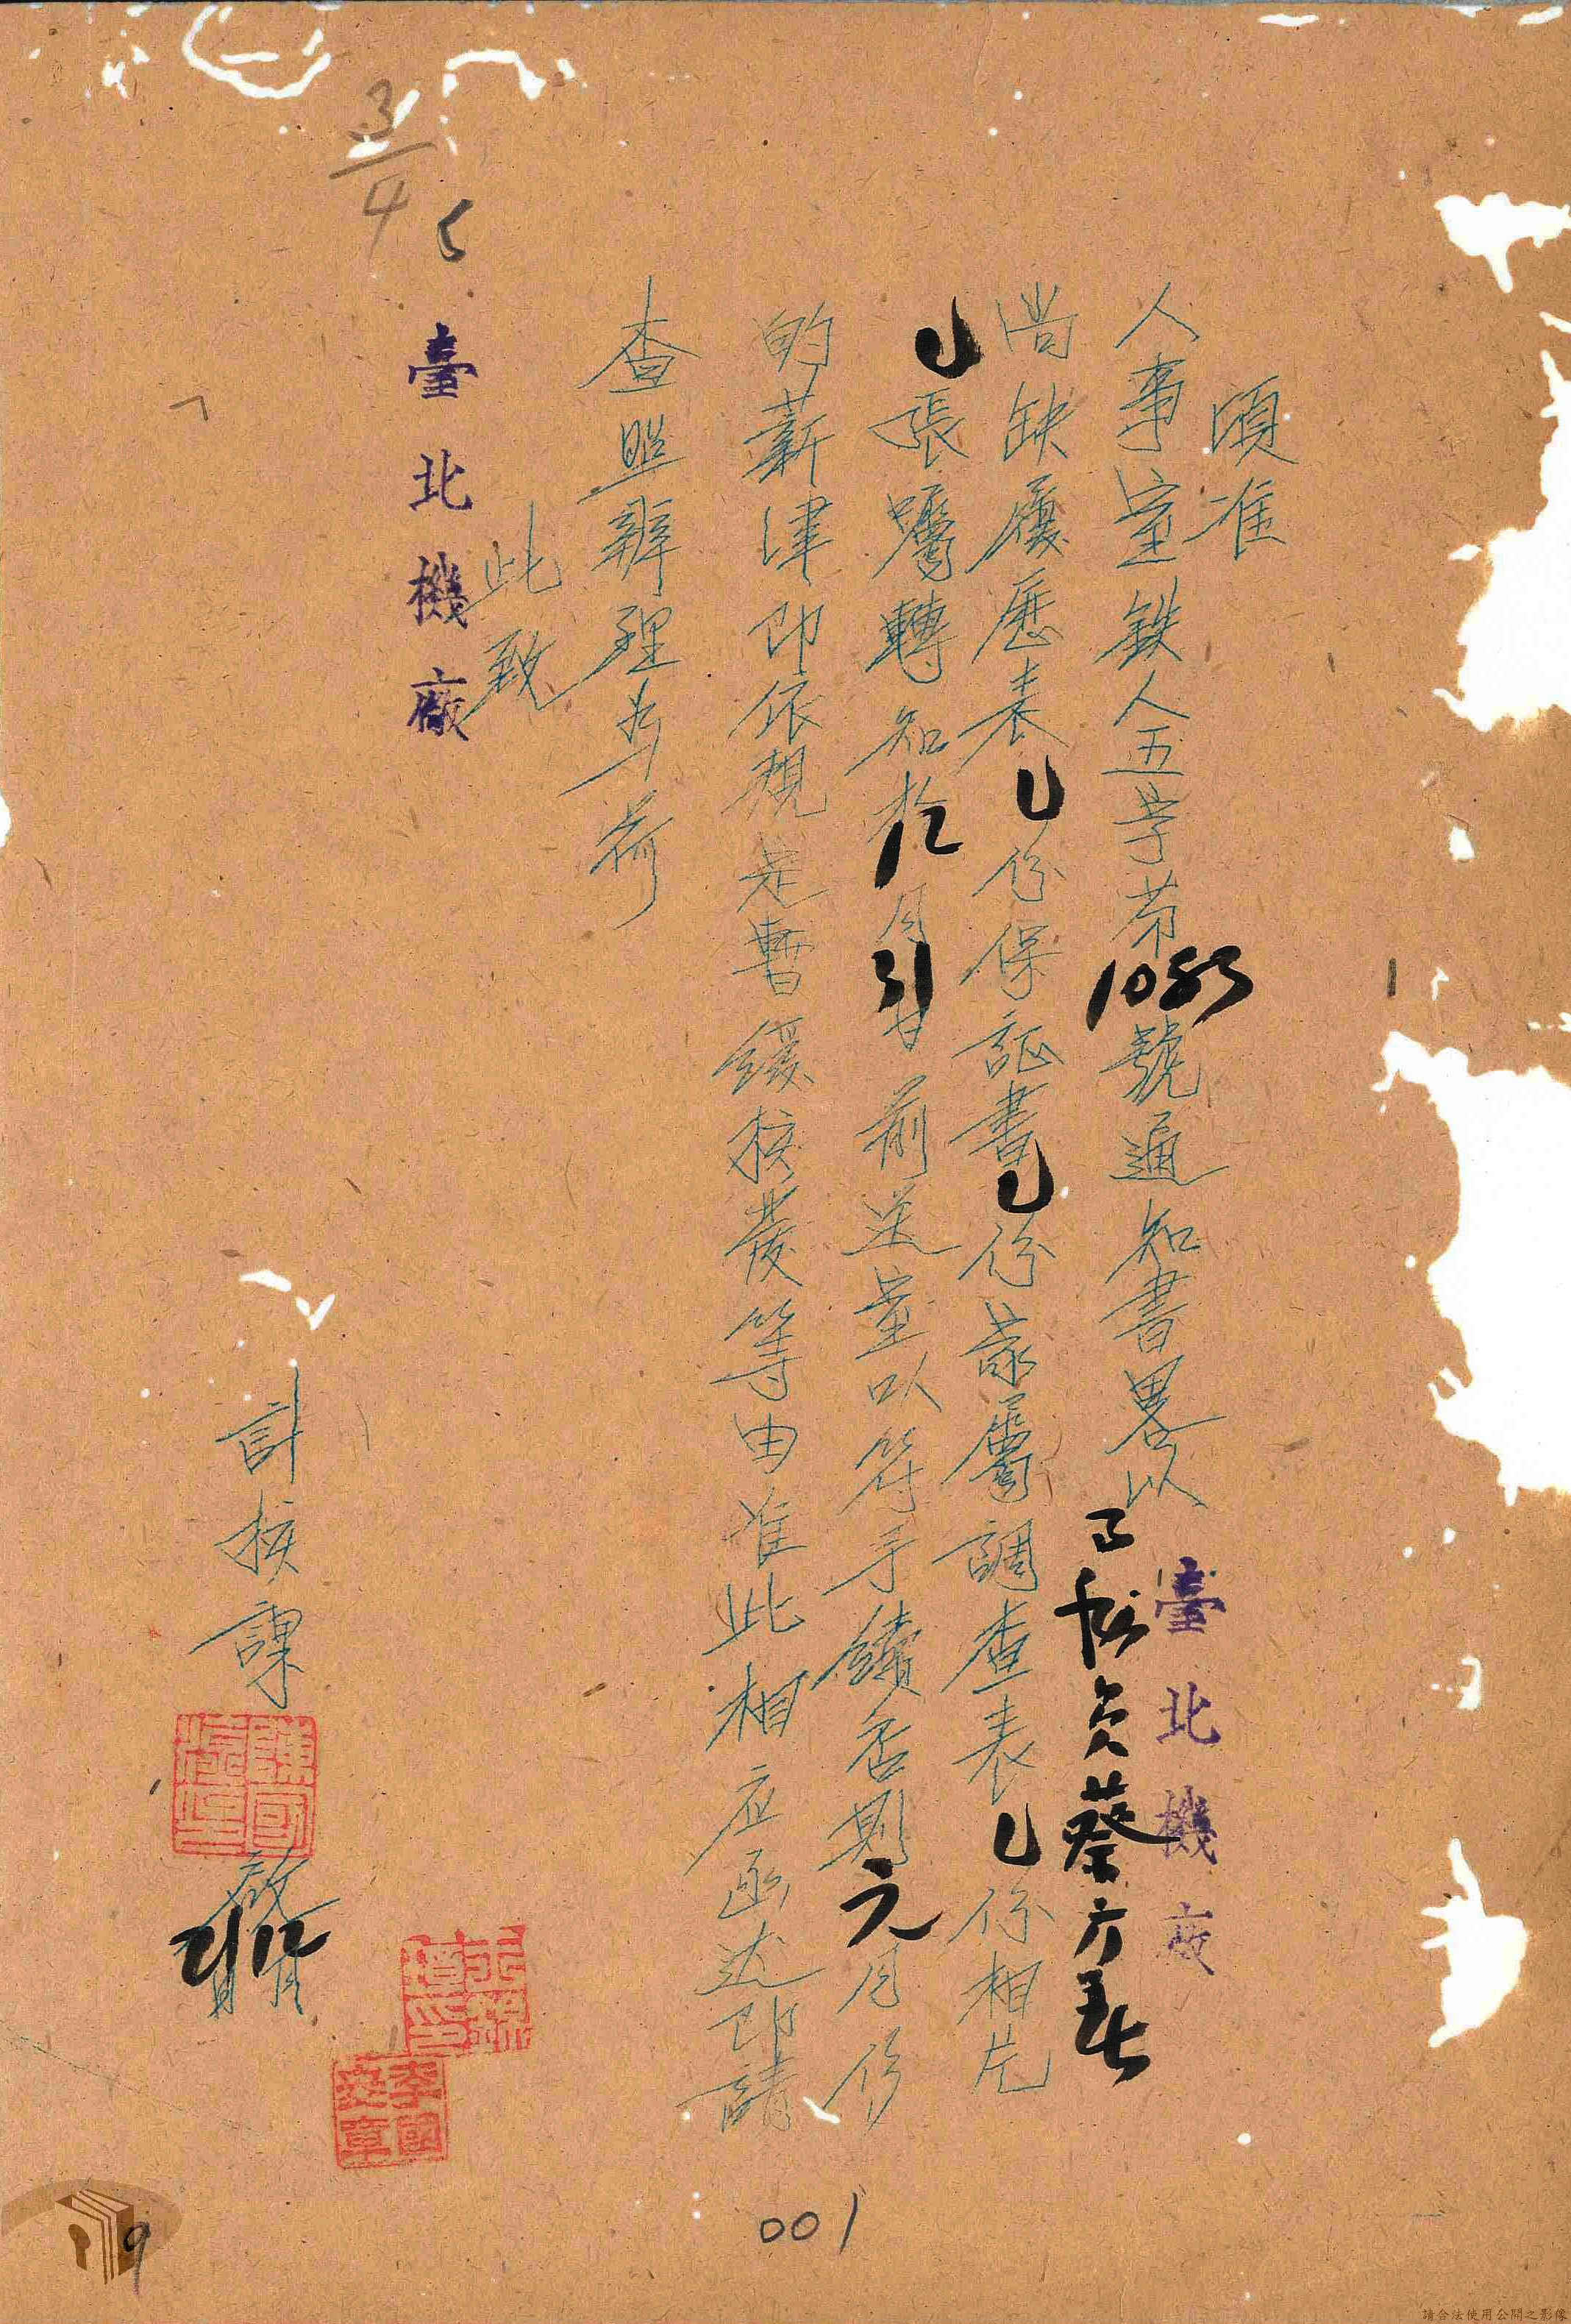 頃准
人事室鉄人五字第1083號通知書畧以臺北機廠
員蔡
尚缺履歷表乚份保証書乚份家屬調查表乚份相片
乚張囑轉知於12月31日前送室以符手續否則元月份
的薪津即依規定暫緩核發等由准此相应函达即請
查照辦理為荷
此致
臺北機廠
計核課
啟
李國
章
3/4
001
9
請合法使用公開之影像